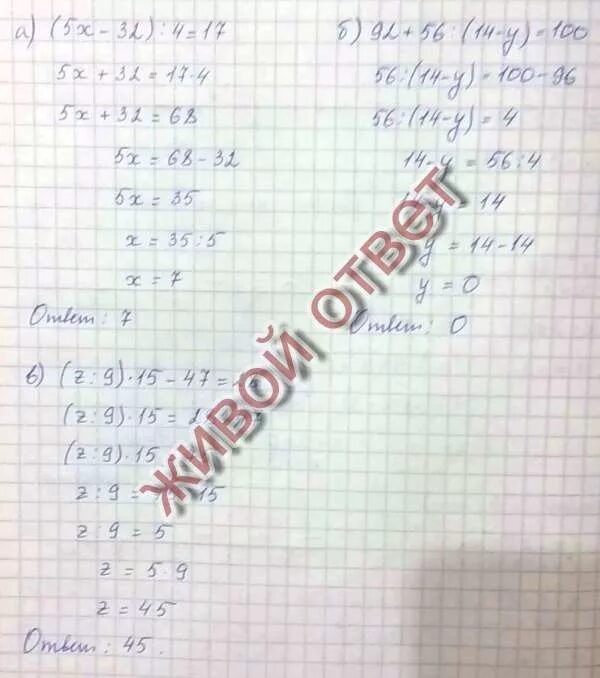 а) (5x - 32) : 4 = 17
5x + 32 = 17·4
5x + 32 = 68
5x = 68 - 32
5x = 35
x = 35 : 5
x = 7
Ответ: 7
б) 92 + 56 : (14 - y) = 100
56 : (14 - y) = 100 - 96
56 : (14 - y) = 4
14 - y = 56 : 4
y = 14
y = 14 - 14
y = 0
Ответ: 0
в) (z : 9) · 15 - 47 =
(z : 9) · 15 =
(z : 9) · 15
z : 9 = 15
z : 9 = 5
z = 5·9
z = 45
Ответ: 45.
ЖИВОЙ ОТВЕТ